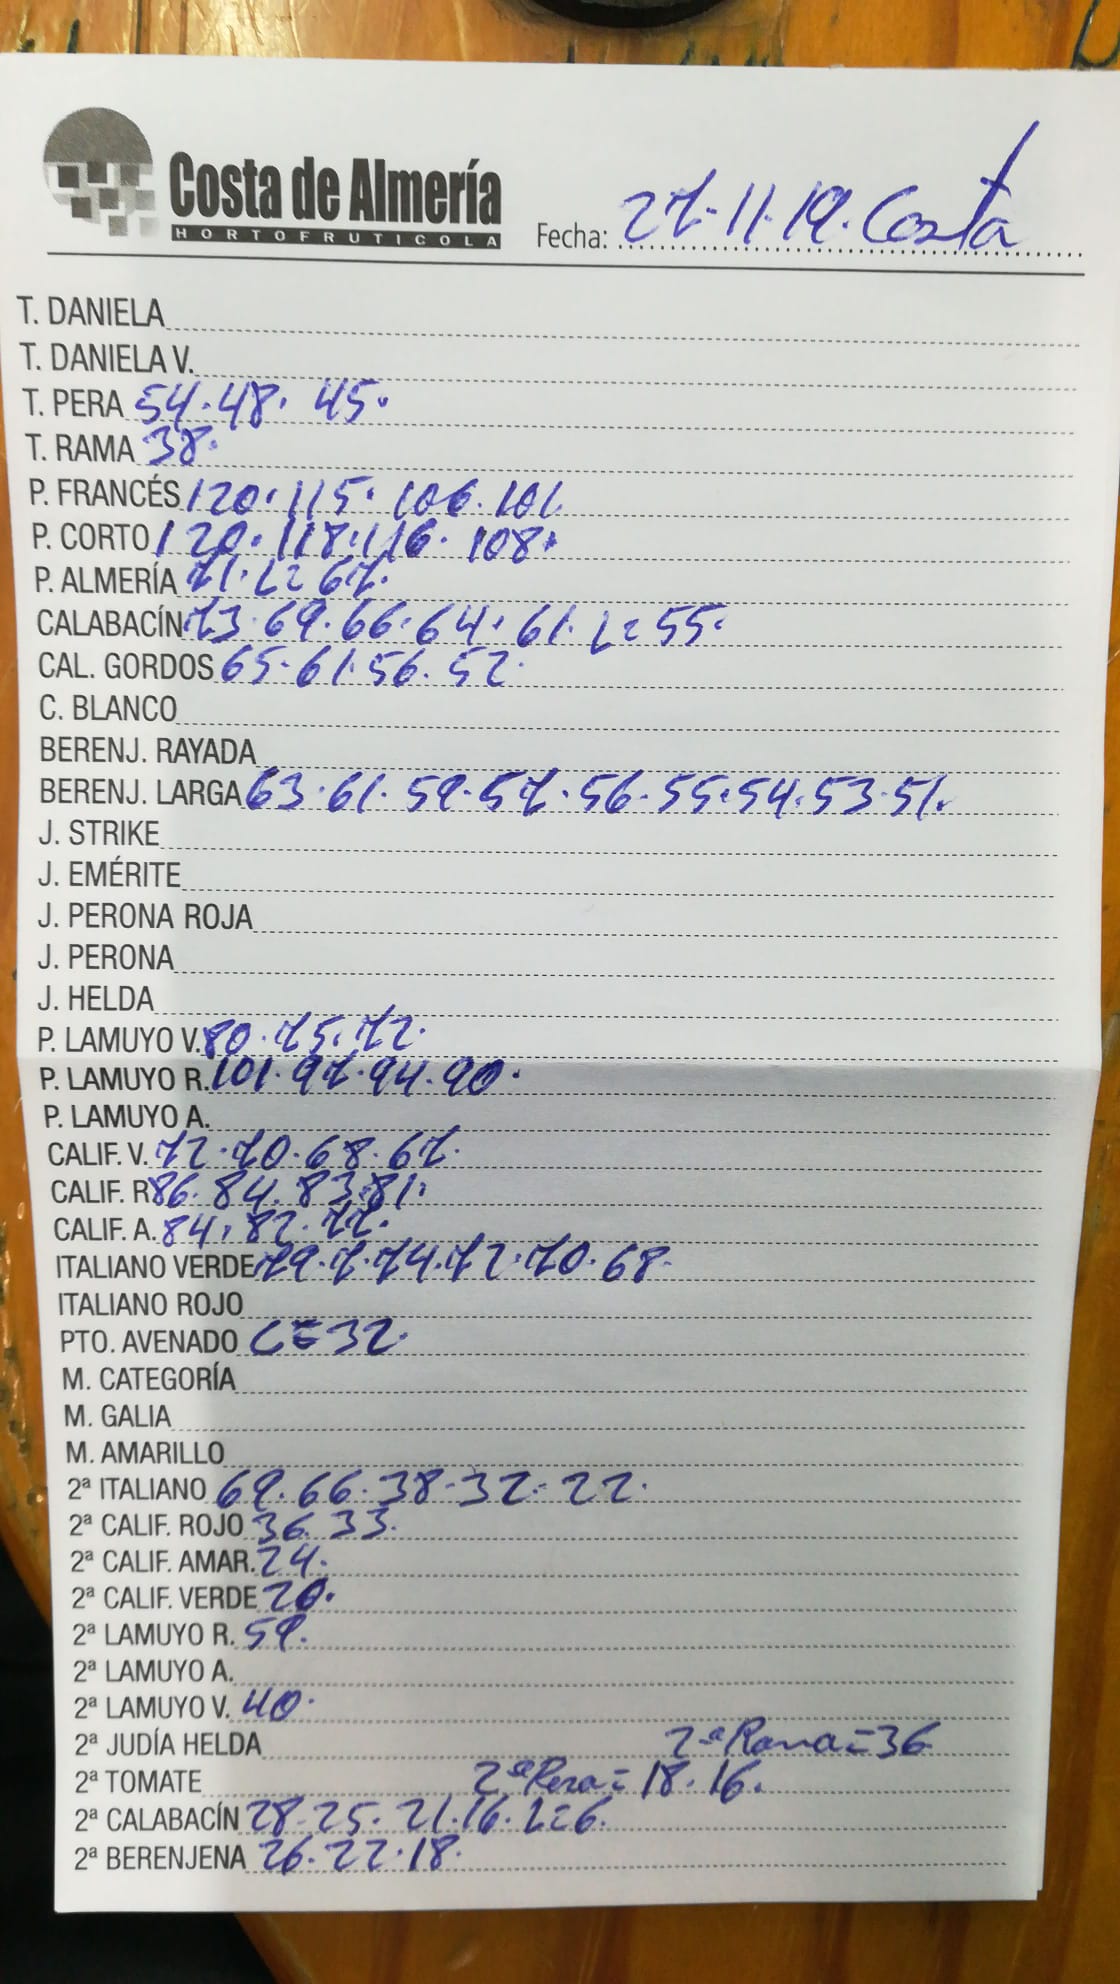 Costa de Almería
HORTOFRUTICOLA
Fecha: 27.11.19. Costa
T. DANIELA
T. DANIELA V.
T. PERA 54.48. 45.
T. RAMA 38.
P. FRANCÉS 120.115.106.101.
P. CORTO 120.118.116.108.
P. ALMERÍA 71. L=67.
CALABACÍN 73.69.66.64.61. L=55.
CAL. GORDOS 65.61.56.52.
C. BLANCO
BERENJ. RAYADA
BERENJ. LARGA 63.61.59.57.56.55.54.53.51.
J. STRIKE
J. EMÉRITE
J. PERONA ROJA
J. PERONA
J. HELDA
P. LAMUYO V. 80.75.72.
P. LAMUYO R. 101.97.94.90.
P. LAMUYO A.
CALIF. V. 72.70.68.67.
CALIF. R 86.84.83.81.
CALIF. A. 84.82.77.
ITALIANO VERDE 79.7.74.72.70.68.
ITALIANO ROJO
PTO. AVENADO C=32.
M. CATEGORÍA
M. GALIA
M. AMARILLO
2ª ITALIANO 69.66.38.32.22.
2ª CALIF. ROJO 36.33.
2ª CALIF. AMAR. 24.
2ª CALIF. VERDE 20.
2ª LAMUYO R. 59.
2ª LAMUYO A.
2ª LAMUYO V. 40.
2ª JUDÍA HELDA 2ª Rama=36
2ª TOMATE 2ª Pera=18.16.
2ª CALABACÍN 28.25.21.16. L=6.
2ª BERENJENA 26.22.18.